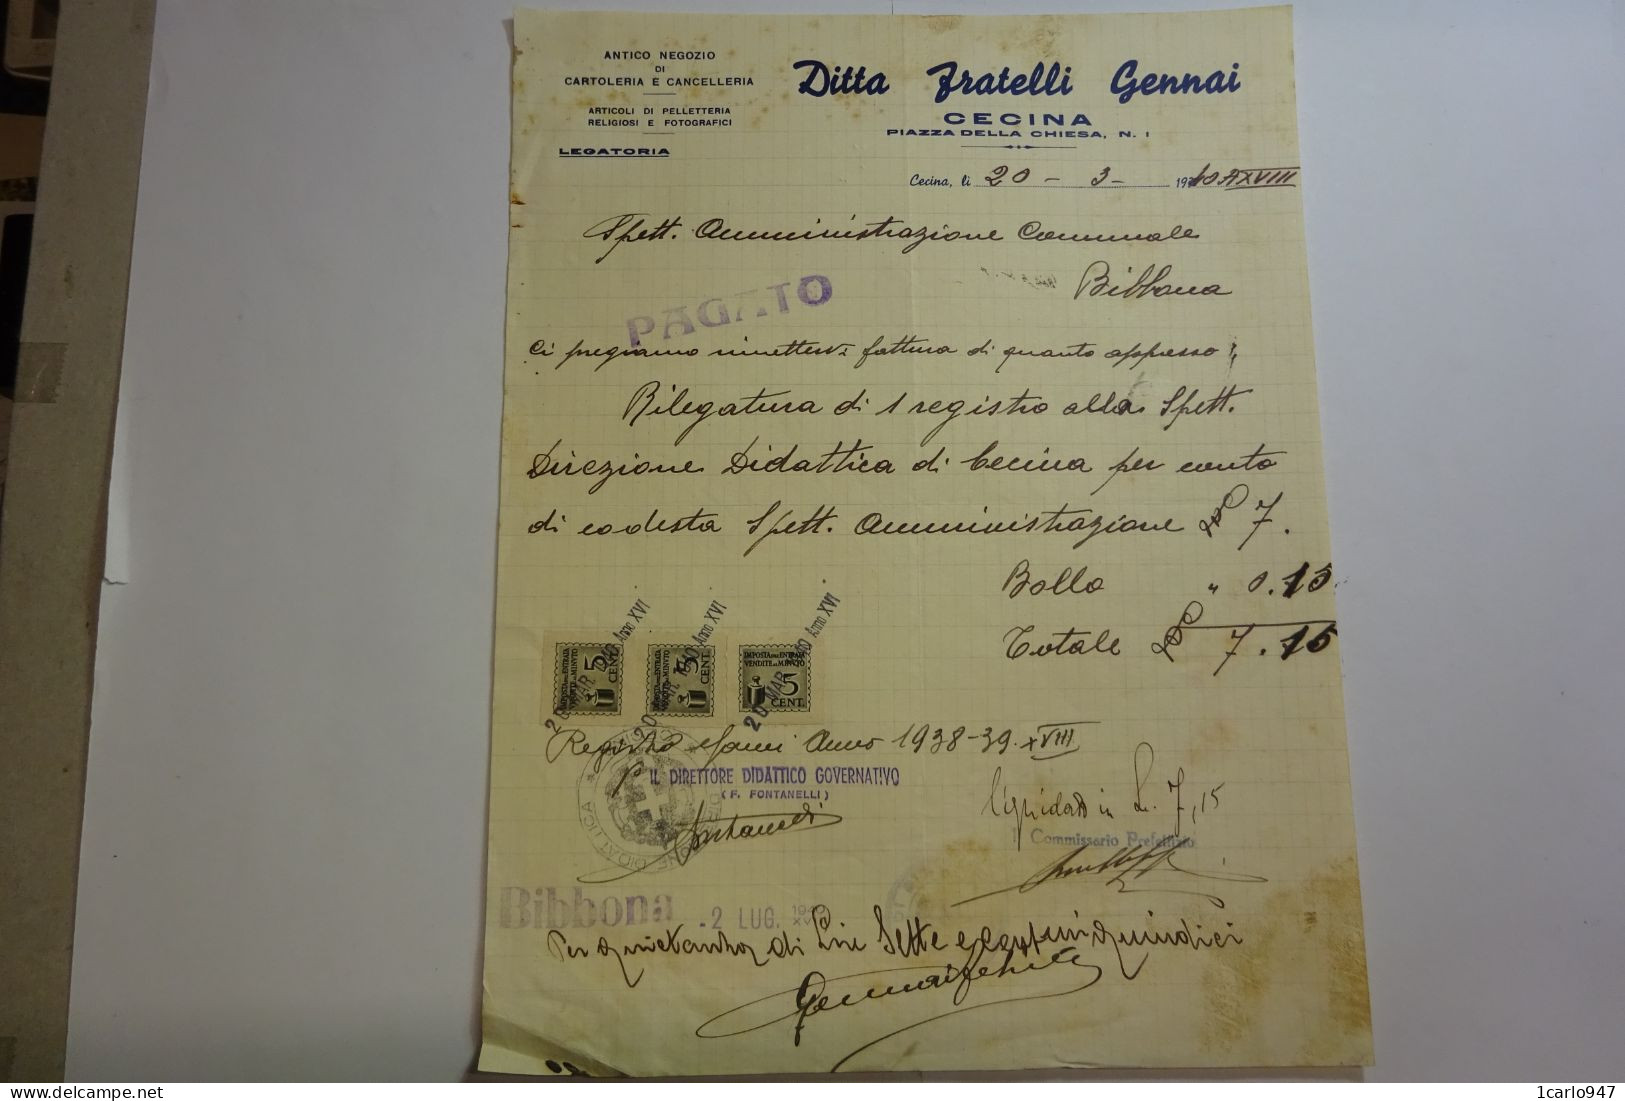 ANTICO NEGOZIO
DI
CARTOLERIA E CANCELLERIA
ARTICOLI DI PELLETTERIA
RELIGIOSI E FOTOGRAFICI
LEGATORIA
Ditta Fratelli Gennai
CECINA
PIAZZA DELLA CHIESA, N. 1
Cecina, li 20 - 3 - 1940 XVIII
Spett. Amministrazione Comunale
Bibbona
PAGATO
Ci pregiamo rimettervi fattura di quanto appresso:
Rilegatura di 1 registro alla Spett.
Direzione Didattica di Cecina per conto
di codesta Spett. Amministrazione £ 7.
Bollo " 0.15
Totale £ 7.15
IMPOSTA SULL'ENTRATA VENDITE AL MINUTO 5 CENT.
IMPOSTA SULL'ENTRATA VENDITE AL MINUTO 5 CENT.
IMPOSTA SULL'ENTRATA VENDITE AL MINUTO 5 CENT.
20 MAR 1940 Anno XVI
20 MAR 1940 Anno XVI
20 MAR 1940 Anno XVI
Registro Anno 1938-39. XVIII
IL DIRETTORE DIDATTICO GOVERNATIVO
(F. FONTANELLI)
Fontanelli
DIREZIONE DIDATTICA
liquidato in L. 7,15
Il Commissario Prefettizio
Bibbona - 2 LUG. 1940
Per quietanza di Lire Sette e centesimi quindici
Gennai
1carlo947